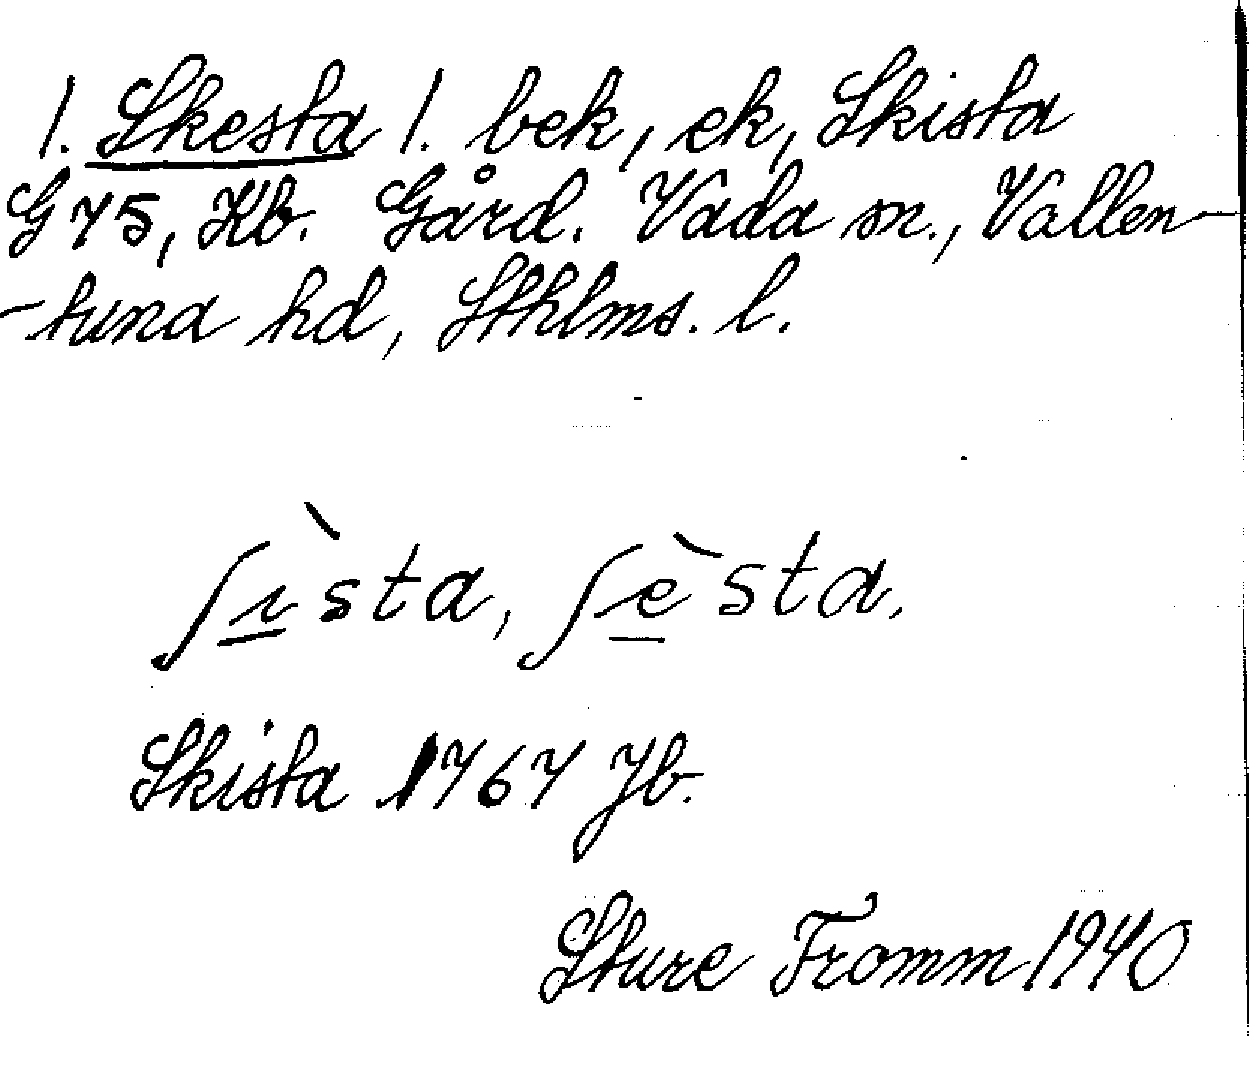 1. Skesta 1. bek, ek, Skista
G 75, Kb. Gård. Vada sn., Vallen-
-tuna hd, Sthlms. l.
ʃɪ̠̀sta, ʃè̠sta.
Skista 1767 Jb.
Sture Fromm 1940